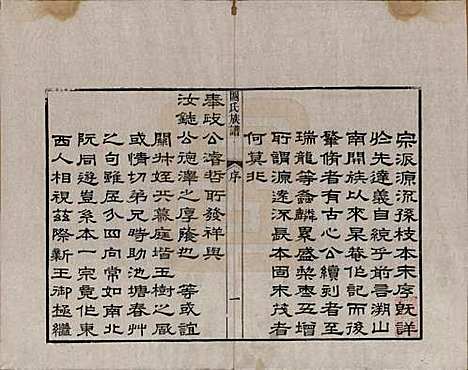 宗派源流後枝本末序既詳
於先達義自統乎前言溯山
南關族以來杲菴作記而後
肇脩者有古心公續刻者至
瑞龍等螽麟累盛槃枣五增
所謂源遠流長本固末茂者
何莫非
關氏族譜
序
一
奉政公濬哲所發祥與
汝錘公德澤之厚蔭也 等或誼
關叔姪共幕庭堦玉樹之風
或情切弟兄時助池塘春艸
之句雖居分四向常如南北
阮同遊豈系本一宗竟作東
西人相視茲際新王御極繼